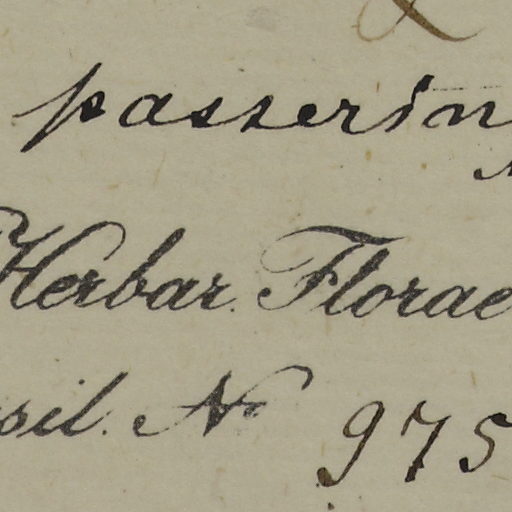 passerin
Herbar. Florae
sil. No 975